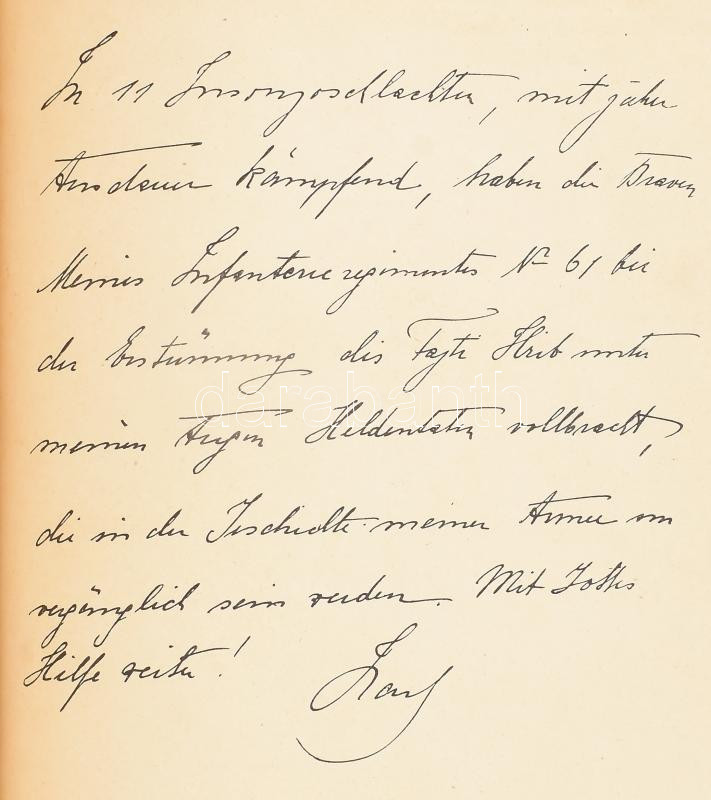 In 11 Insonzoschlachten, mit zäher
Ausdauer kämpfend, haben die Braven
Meines Infanterieregimentes No 61 bei
der Erstürmung des Fajti Hrib unter
meinen Augen Heldentaten vollbracht,
die in der Geschichte meiner Armee un
vergänglich sein werden. Mit Gottes
Hilfe weiter!
Karl
darabanth